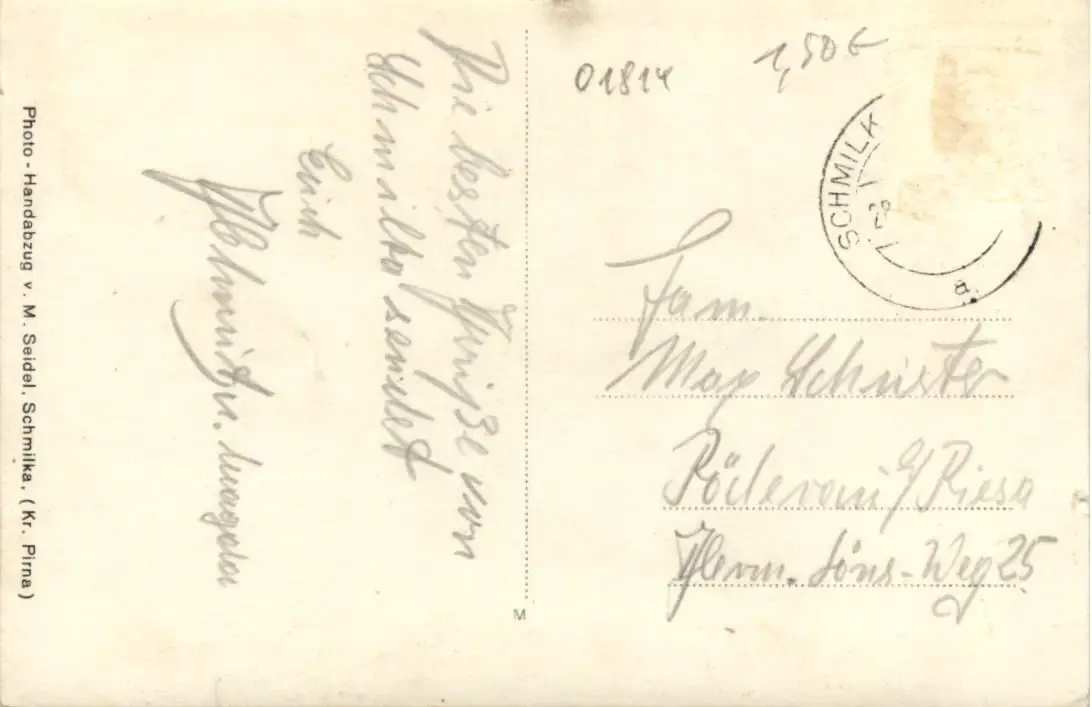 Photo-Handabzug v. M. Seidel, Schmilka, (Kr. Pirna)
Die besten Grüße von
Schmilka sendet
Euch
M
01814
1,50 €
SCHMILK
a
Fam.
Max Schuster
Röderau b/Riesa
Herm. Löns-Weg 25